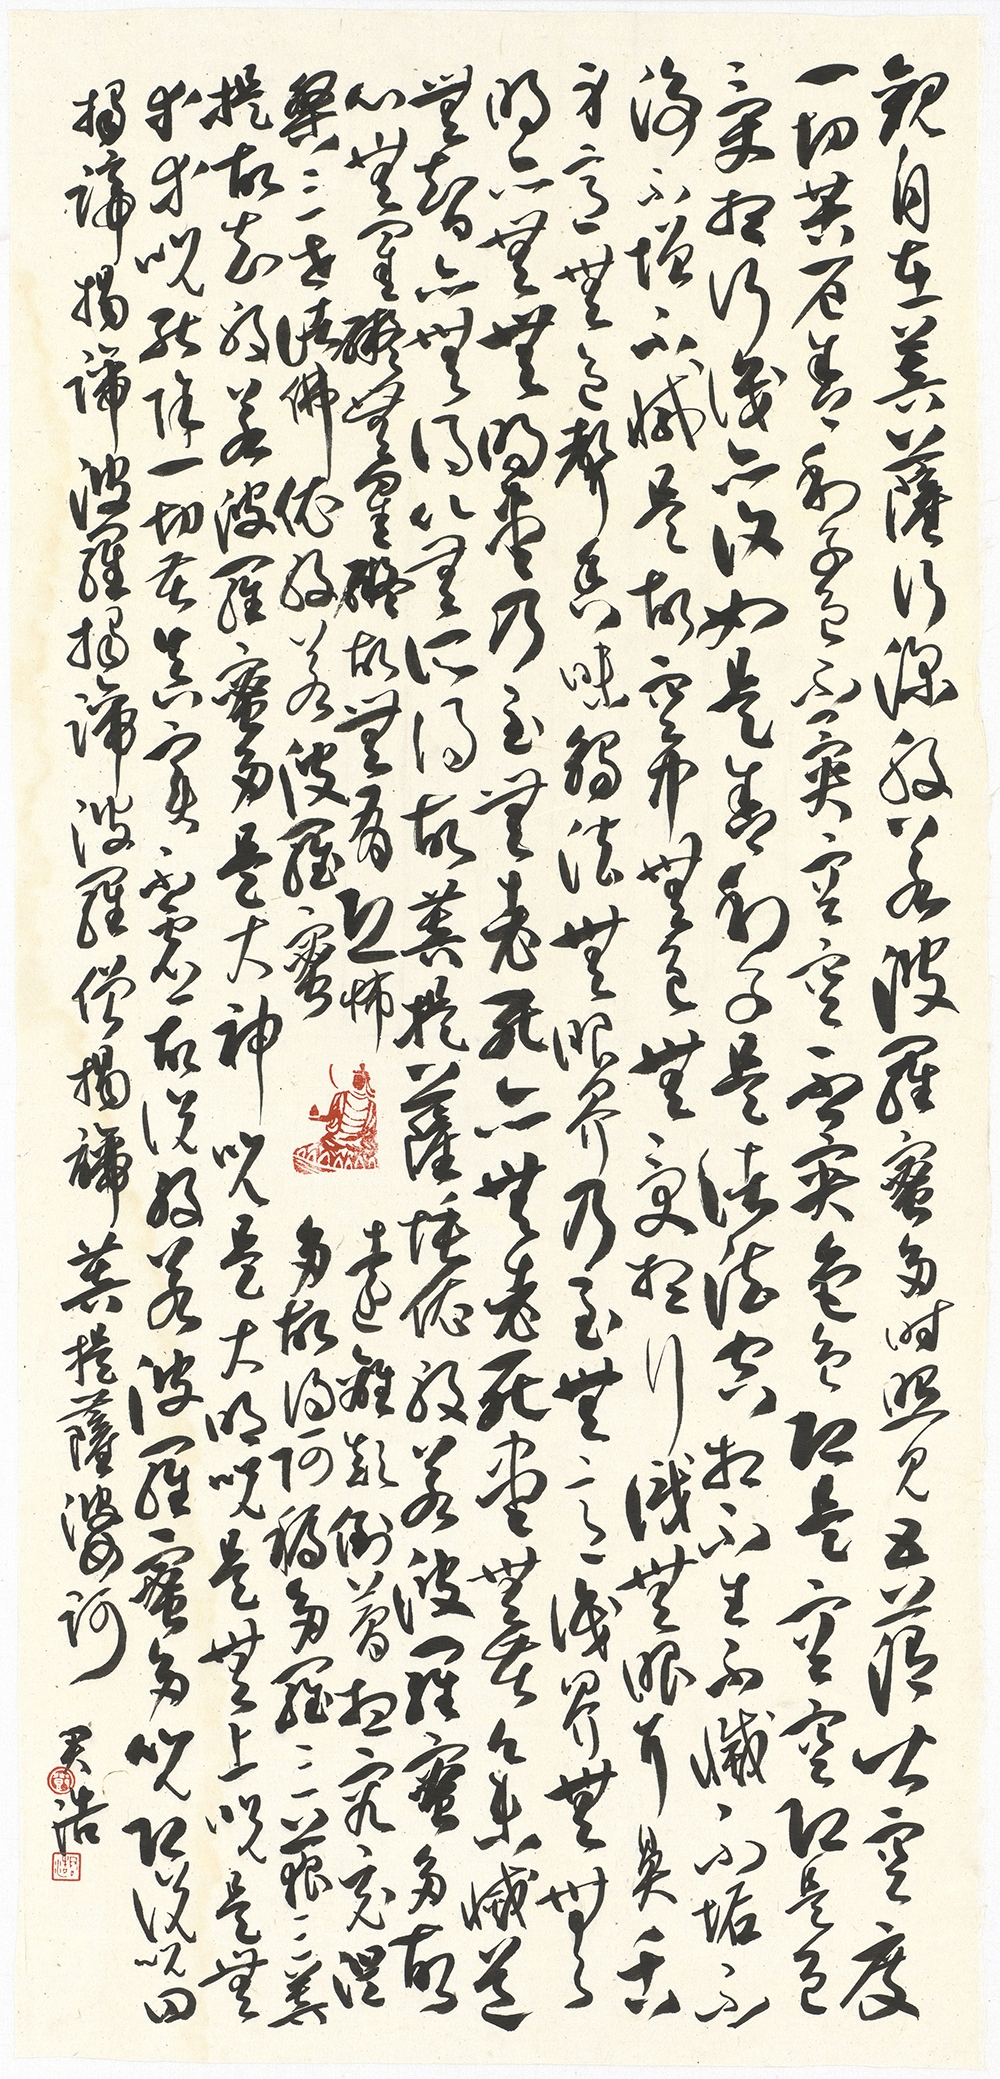 觀自在菩薩行深般若波羅蜜多時照見五蘊皆空度
一切苦厄舍利子色不異空空不異色色即是空空即是色
受想行識亦復如是舍利子是諸法空相不生不滅不垢不
淨不增不減是故空中無色無受想行識無眼耳鼻舌
身意無色聲香味觸法無眼界乃至無意識界無無
明亦無無明盡乃至無老死亦無老死盡無苦集滅道
無智亦無得以無所得故菩提薩埵依般若波羅蜜多故
心無罣礙無罣礙故無有恐怖遠離顛倒夢想究竟涅
槃三世諸佛依般若波羅蜜多故得阿耨多羅三藐三菩
提故知般若波羅蜜多是大神咒是大明咒是無上咒是無
等等咒能除一切苦真實不虛故說般若波羅蜜多咒即說咒曰
揭諦揭諦波羅揭諦波羅僧揭諦菩提薩婆訶
君浩